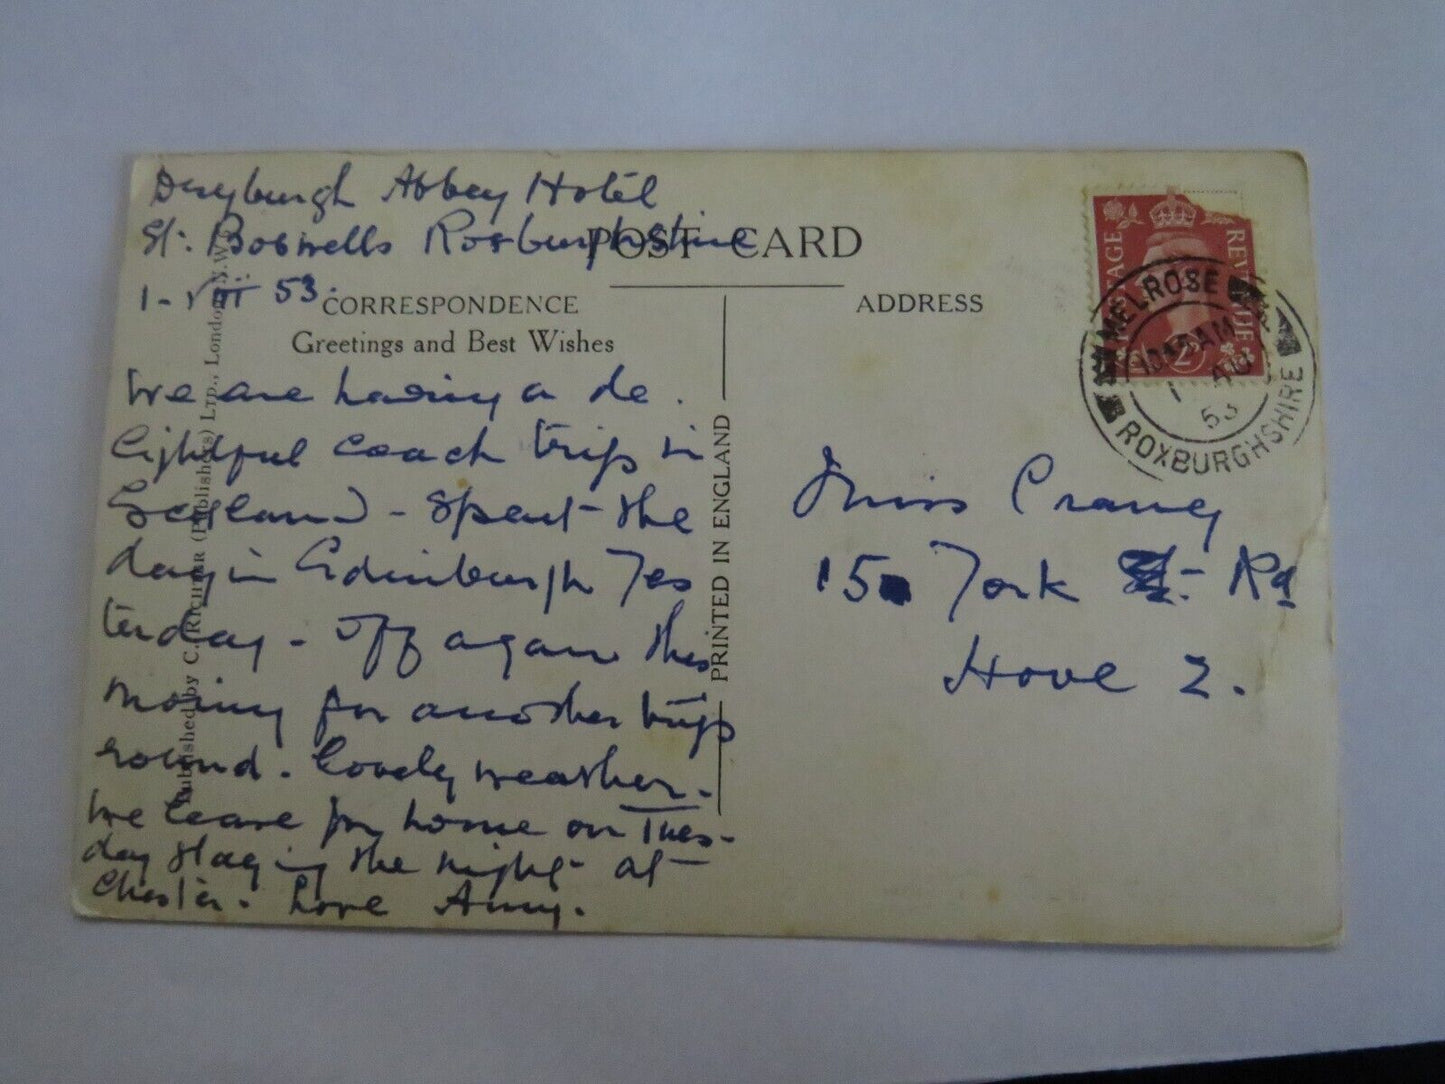 Dryburgh Abbey Hotel
St. Boswells Roxburghshire
1-VIII 53.
POST CARD
CORRESPONDENCE
Greetings and Best Wishes
We are having a de.
lightful coach trip in
Scotland - Spent the
day in Edinburgh Yes
terday - off again this
morning for another trip
round. Lovely weather.
We leave for home on Tues-
day staying the night at
Chester. Love Amy.
Published by C. RICHTER (Publishers) LTD., London, N.W.
PRINTED IN ENGLAND
ADDRESS
POSTAGE
REVENUE
MELROSE
10 15 AM
1 AU
53
ROXBURGHSHIRE
Miss Craney
15 York Rd
Hove 2.